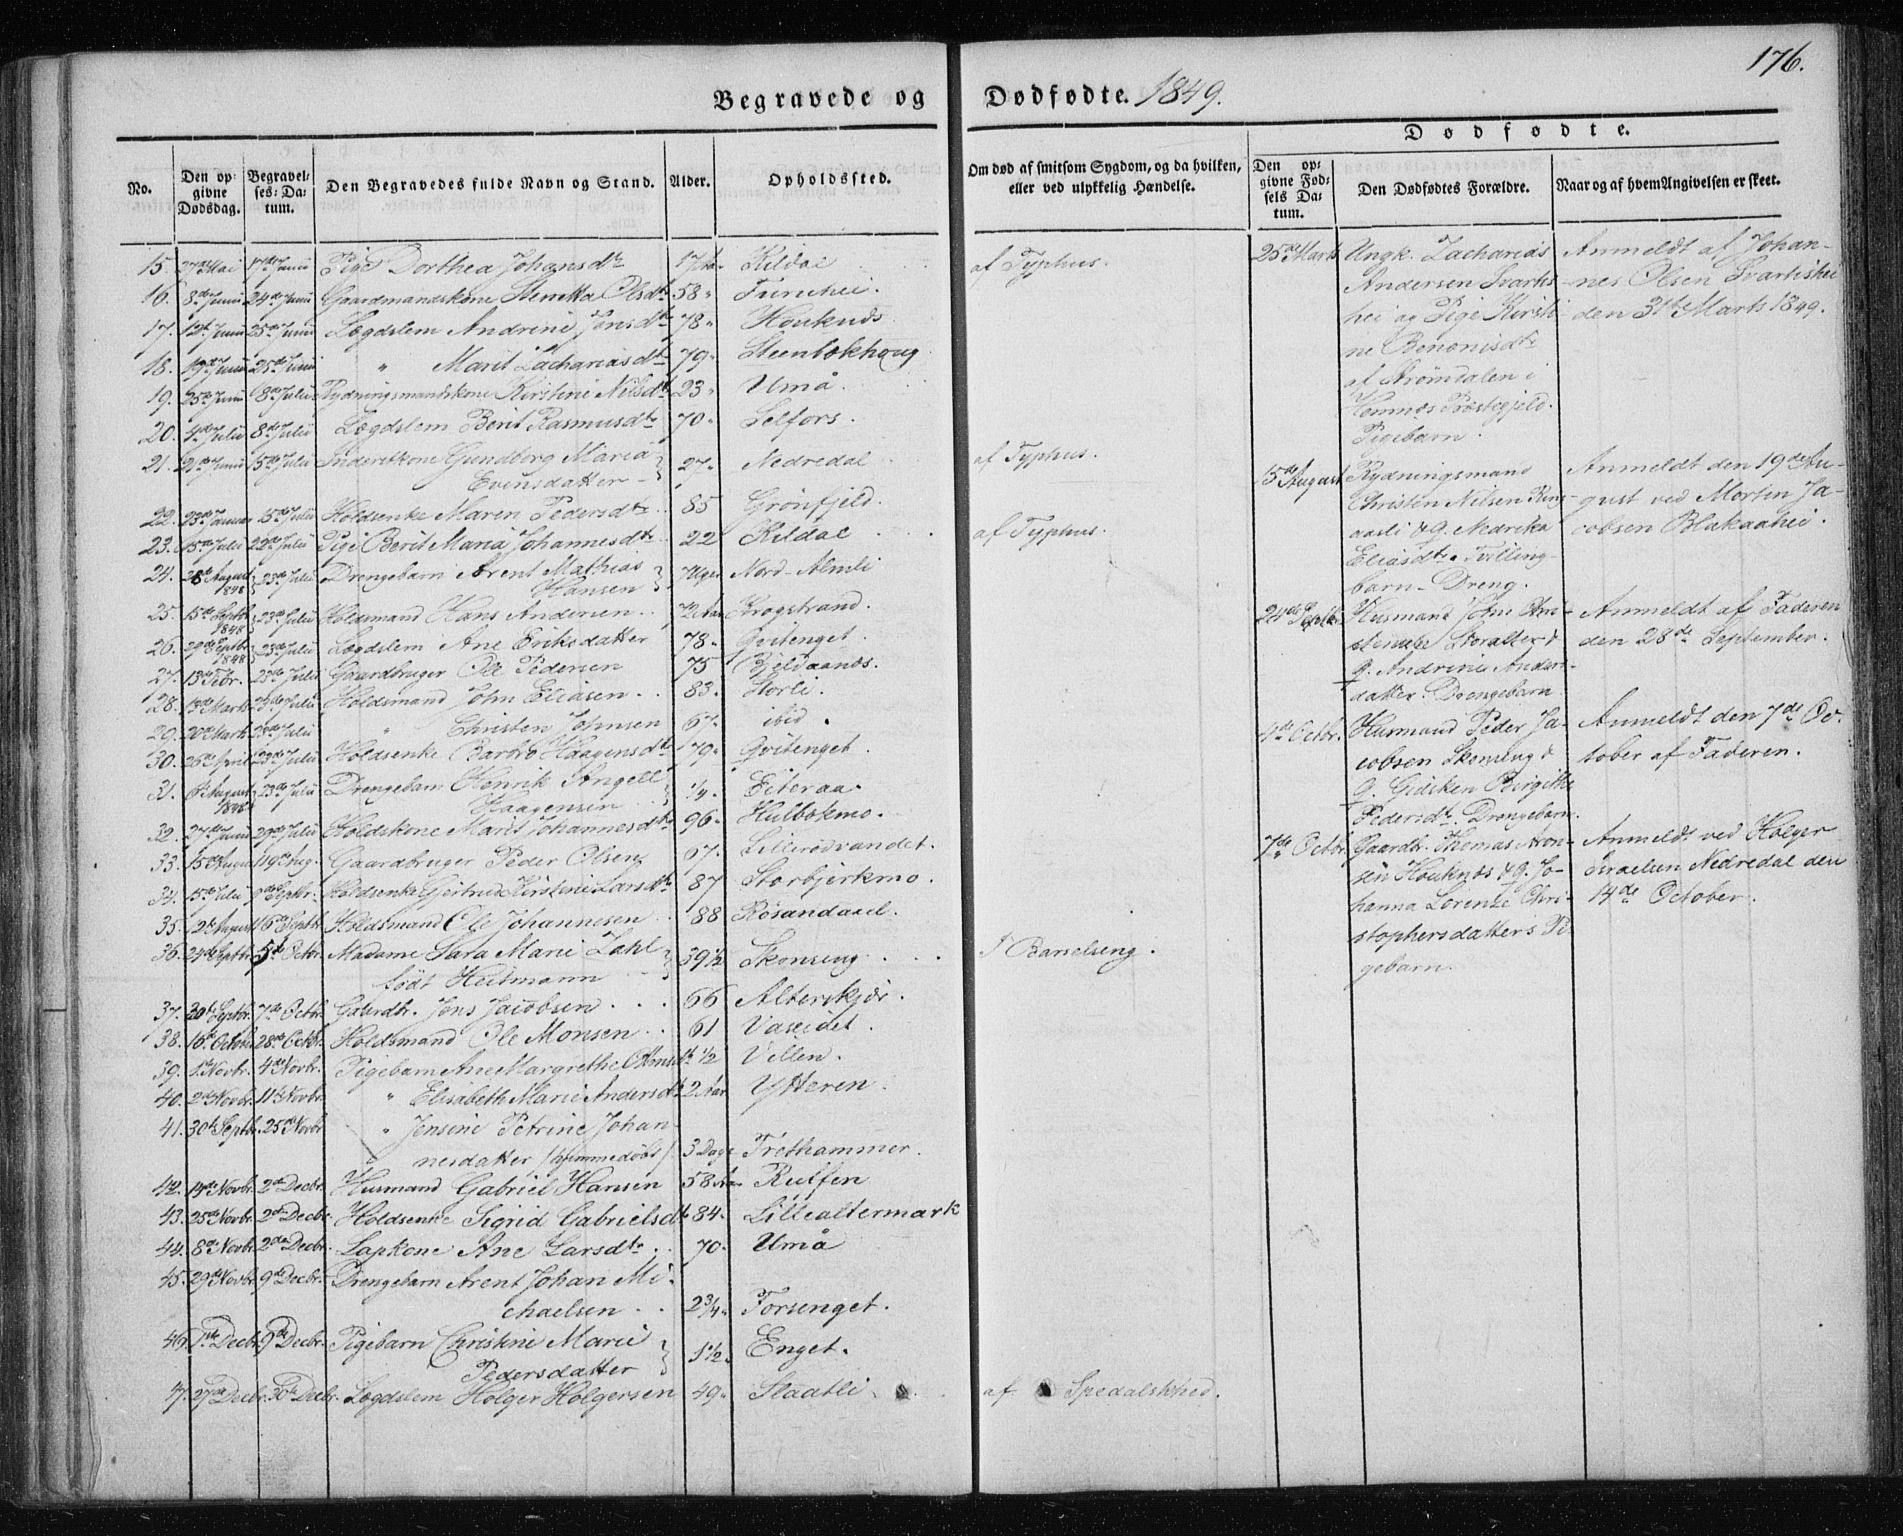 176.
Begravede og Dødfødte. 1849.
No.
Den opgivne Dødsdag.
Begravelses-Datum.
Den Begravedes fulde Navn og Stand.
Alder.
Opholdssted.
Om død af smitsom Sygdom, og da hvilken, eller ved ulykkelig Hændelse.
Dødfødte.
Den opgivne Fødsels Datum.
Den Dødfødtes Forældre.
Naar og af hvem Angivelsen er skeet.
15. 27de Mai 17de Junii Pige Dorthea Johansdtr 17 Aar Kildal af Typhus.
16. 8de Junii 24de Junii Gaardmandskone Olsdtr 58 "
17. 12te Junii 25de Junii Lægdslem Andrine Jonsdtr 78 " Houknæs
18. 19de Junii 25de Junii " Marit Zachariasdtr 79 " Steenbækhoug
19. 25de Junii 8de Julii Rydningsmandskone Kirstine Nilsdtr 23 " Umå.
20. 4de Julii 8de Julii Lægdslem Berit Rasmusdtr 70 " Selfors.
21. 21de Junii 15de Julii Inderstkone Gundborg Maria
Evensdatter 27 " Nedredal af Typhus.
22. 23de Januar 15de Julii Holdsenke Maren Pedersdtr 85 Grønfjeld.
23. 15de Julii 22de Julii Pige Berit Maria Johannesdtr 22 Kildal af Typhus.
24. August 1848 23de Julii Drengebarn Arent Mathias
Hansen 7 Uger Nord-Almli
25. 15de Septbr 1848 23de Julii Holdsmand Hans Andersen 72 Aar Krogstrand.
26. 29de Septbr 1848 23de Julii Lægdslem Ane Eriksdatter 78 " Gvitenget.
27. 13de Febr. 23de Julii Gaardbruger Ole Pedersen 75 Bjeldaanæs.
28. 13de Marts 23de Julii Holdsmand John Eliasen 83. Storli.
29. 20de Marts 23de Julii " Christen Johnsen 67 " ibid.
30. 26de April 23de Julii Holdsenke Barbro Haagensdtr 70 " Gvitenget.
31. 6te August 1848 23de Julii Drengebarn Henrik Angell
Haagensen 1/4. Eiteraa.
32. 27de Junii 29de Julii Holdskone Marit Johannesdtr 96 " Hulbækmo.
33. 15de August 19de Aug. Gaardbruger Peder Olsen 67. Lillerødvandet.
34. 15de Julii 9de Septbr. Holdsenke Gjertrud Kirstine Larsdtr 87 Storbjerkmo.
35. 2de August 16de Septbr Holdsmand Ole Johannesen 88 Røsandaael.
36. 24de Septbr 5te Octbr Madame Sara Marie Zahl
født Heitmann 39 1/2 Skonseng. I Barselseng.
37. 20de Septbr. 7de Octbr Gaardbr. Jens Jacobsen 66 Alterskjær.
38. 16de Octbr 28de Octbr. Holdsmand Ole Monsen 61 Vaseidet.
39. 1ste Novbr. 4de Novbr. Pigebarn Ane Margrethe 1/2 Villen.
40. 2de Novbr. 11te Novbr. " Elisabeth Marie Andersdtr 2 Aar Ytteren.
41. 30te Septbr. 25de Novbr " Jensine Petrine Johan-
nesdatter /hjemmedøbt/ 3 Dage Frethammer.
42. 14de Novbr. 2de Decbr. Husmand Gabriel Hansen 58 Aar
43. 25de Novbr. 2de Decbr. Holdsenke Sigrid Gabrielsdtr 84. Lillealtermark
44. 8de Novbr. 2de Decbr. Lapkone Ane Larsdtr 70. Umå
45. 29de Novbr. 9de Decbr. Drengebarn Arent Johan Mi-
chaelsen 2 3/4 " Forsenget.
46. 1ste Decbr. 9de Decbr. Pigebarn Christine Marie
Pedersdatter 1 1/2 " Enget.
47. 27de Decbr. 30te Decbr. Lægdslem Holger Holgersen 49 " Staatli af Spedalskhed.
25de Marts Ungk. Zacharias
Andersen Svartis-
hei og Pige Kirsti-
ne Benonisdtr
af Strømdalen i
Hemnæs Præstegjeld.
Pigebarn.
Anmeldt af Johan-
nes Olsen Svartishei
den 31te Marts 1849.
15de August Rydningsmand
Christen Nilsen Ring-
aasli & g. Nedreka
Eliasdtr. Tvilling-
barn - Dreng.
Anmeldt den 19de Au-
gust ved Morten Ja-
cobsen Blakaahei.
24de Septbr. Husmand John Chri-
stensen &
g. Andrine Anders-
datter. Drengebarn
Anmeldt af Faderen
den 28de September.
4de Octbr. Husmand Peder Ja-
cobsen Skonseng &
g. Gidsken Birgithe
Pedersdtr. Drengebarn.
Anmeldt den 7de Oc-
tober af Faderen.
7de Octbr. Gaardbr. Thomas Aron-
sen Houknæs & g. Jo-
hanna Lorentze Chri-
stophersdatters Pi-
gebarn.
Anmeldt ved Holger
Israelsen Nedredal den
14de October.